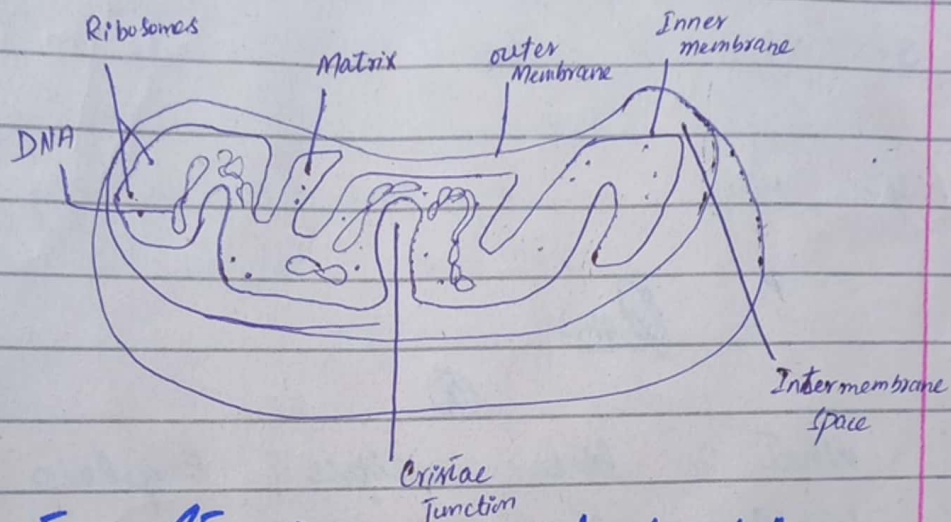 Ribosomes
Matrix
outer
Membrane
Inner
membrane
DNA
Intermembrane
space
Cristae
Junction